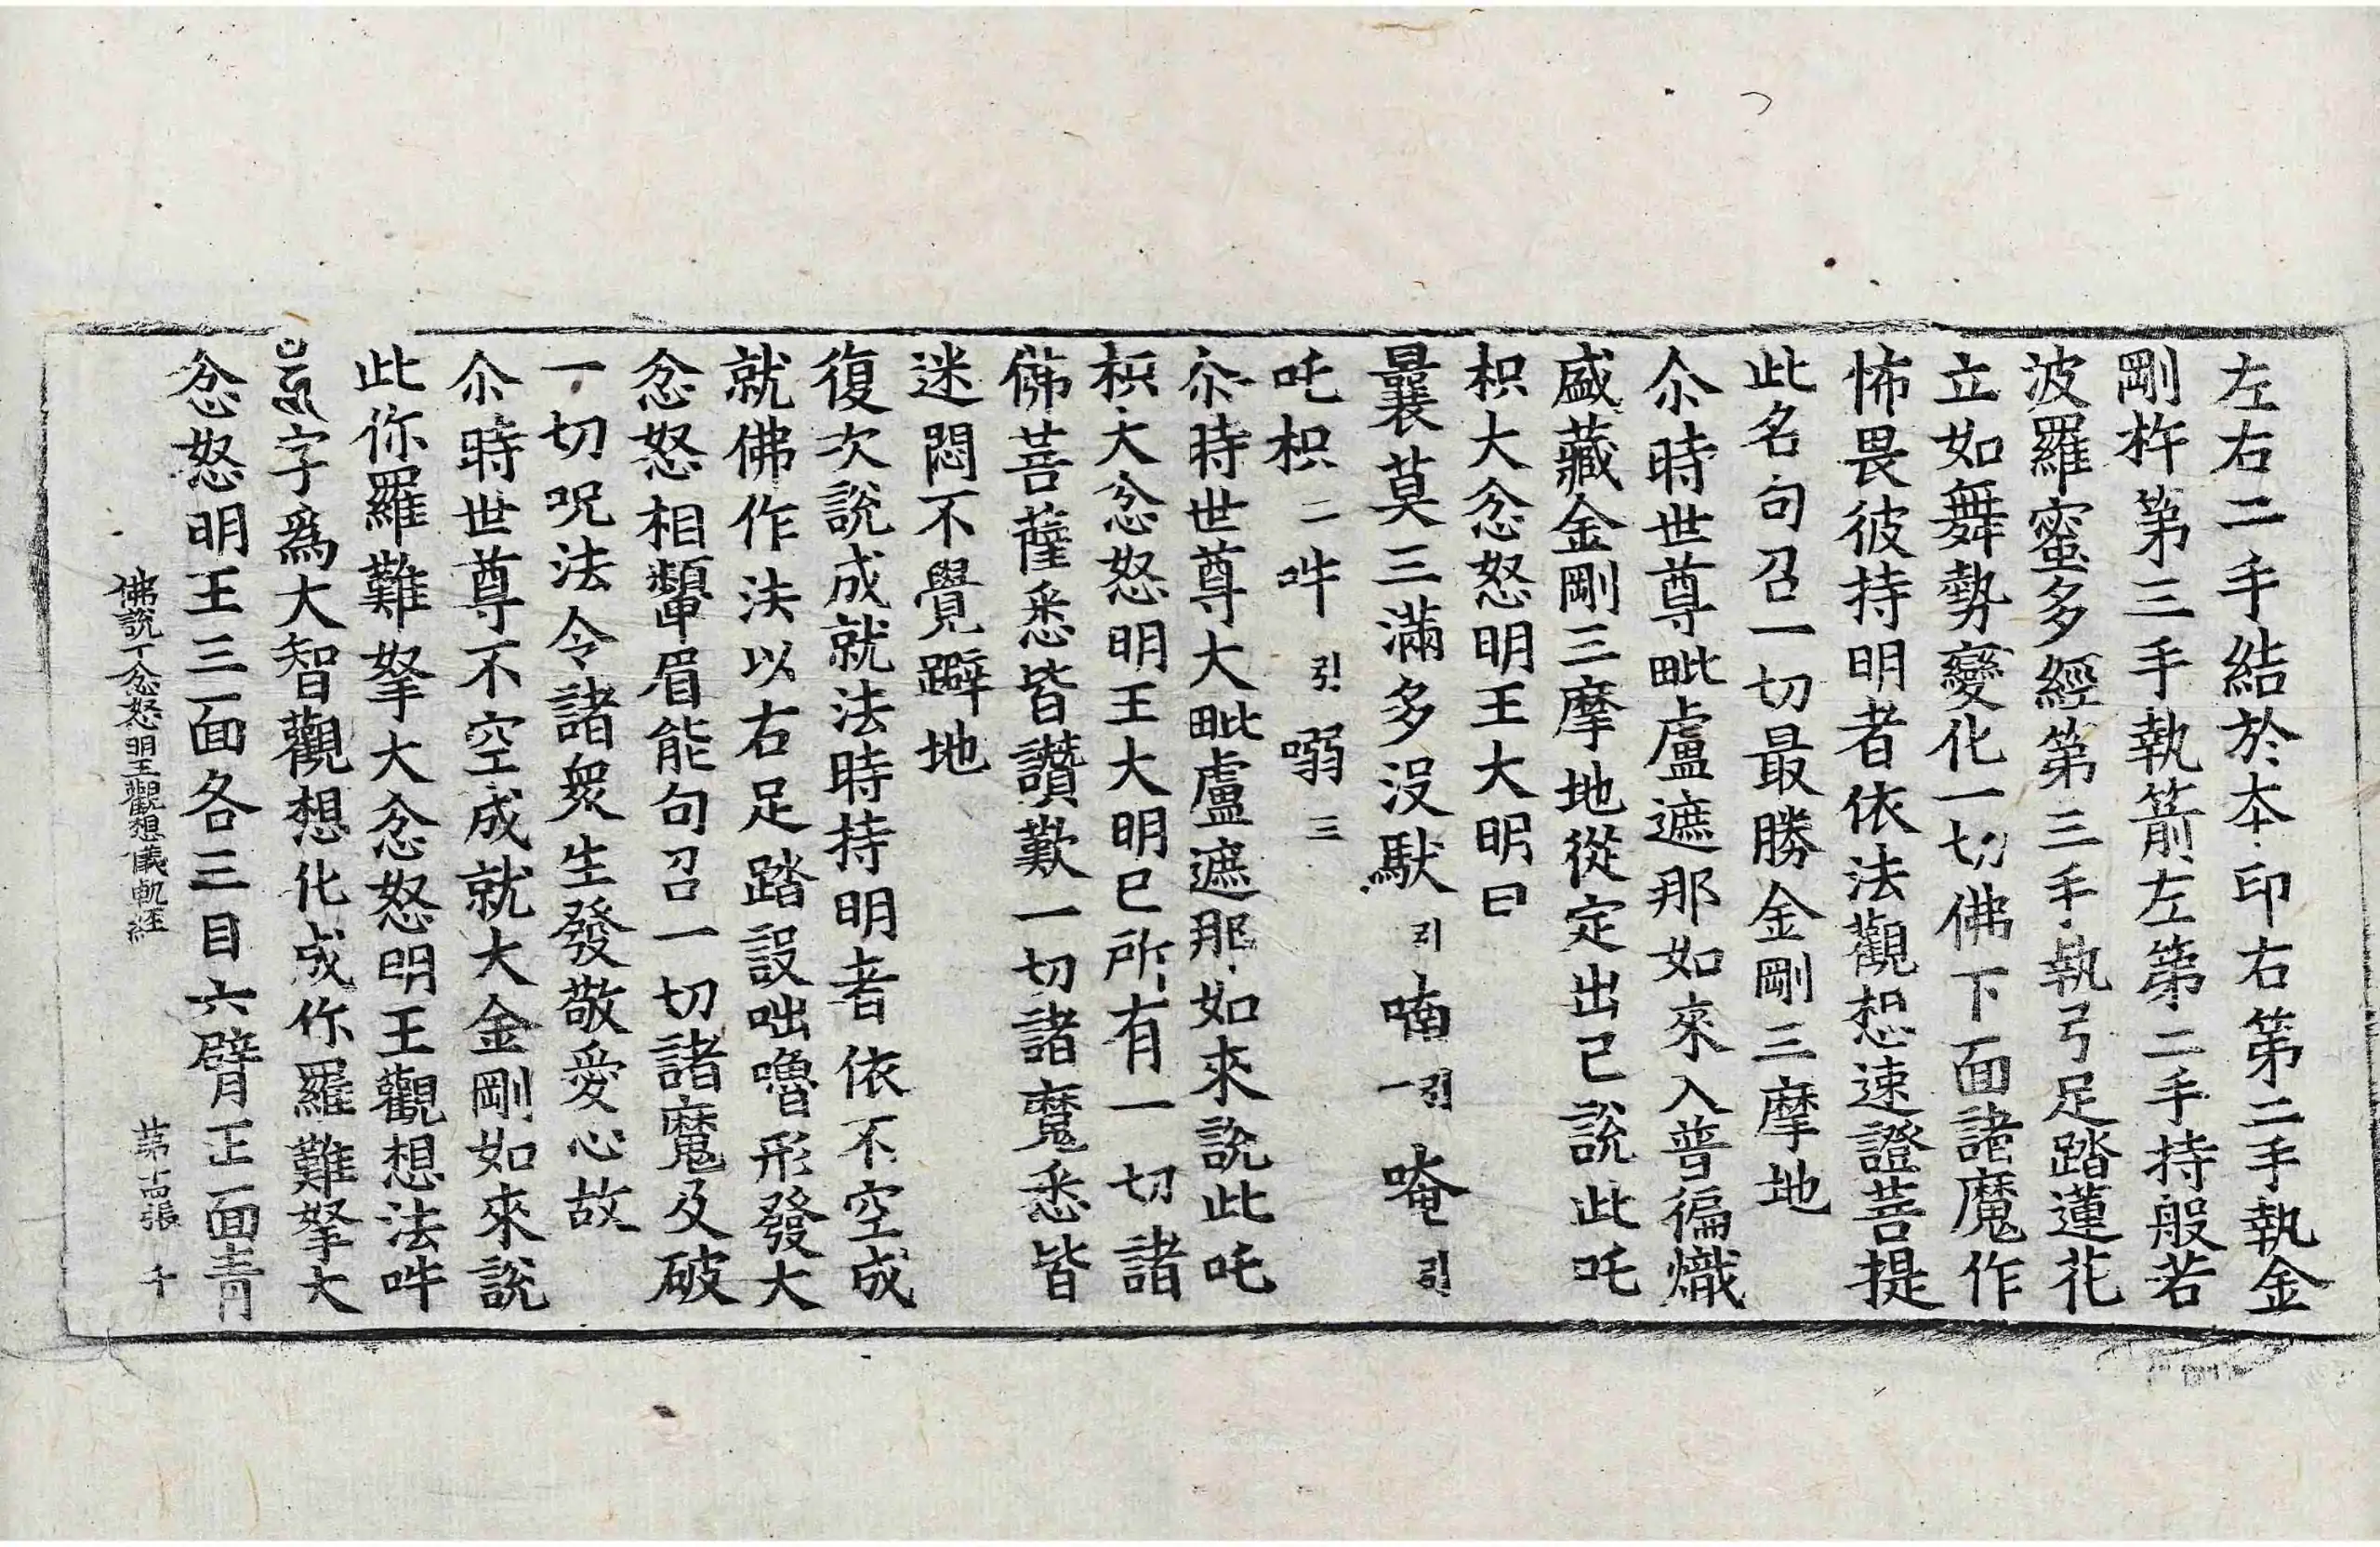 左右二手結於本印右第二手執金
剛杵第三手執箭左第二手持般若
波羅蜜多經第三手執弓足踏蓮花
立如舞勢變化一切佛下面諸魔作
怖畏彼持明者依法觀想速證菩提
此名句召一切最勝金剛三摩地
尒時世尊毗盧遮那如來入普徧熾
盛藏金剛三摩地從定出已說此吒
枳大忿怒明王大明曰
曩莫三滿多沒馱引喃引一唵引
吒枳二吽引嗍三
尒時世尊大毗盧遮那如來說此吒
枳大忿怒明王大明已所有一切諸
佛菩薩悉皆讚歎一切諸魔悉皆
迷悶不覺躃地
復次說成就法時持明者依不空成
就佛作法以右足踏設咄嚕形發大
忿怒相顰眉能句召一切諸魔及破
一切呪法令諸衆生發敬愛心故
尒時世尊不空成就大金剛如來說
此你羅難拏大忿怒明王觀想法吽
字爲大智觀想化成你羅難拏大
忿怒明王三面各三目六臂正面青
佛說丁忿怒明王觀想儀軌經 第十四張 千